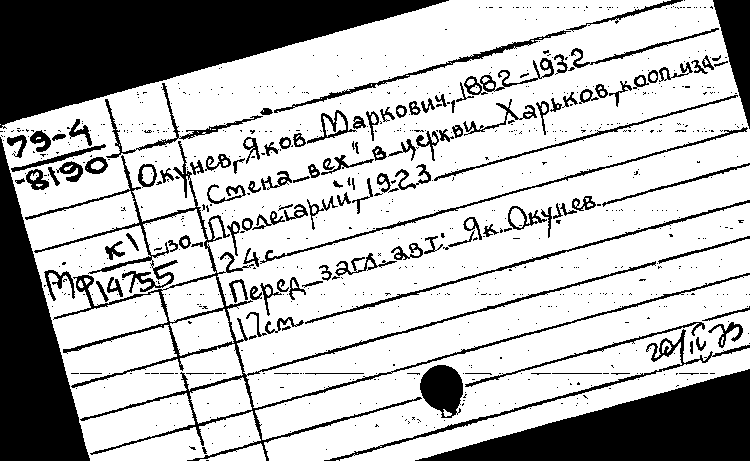 79-4
8190
Окунев, Яков Маркович, 1882-1932
„Смена вех" в церкви. Харьков, кооп. изд-
„Пролетарий", 1923
24 с.
Перед загл. авт: Як. Окунев
17 см.
МФ К1 -130
14755
20/IV 79